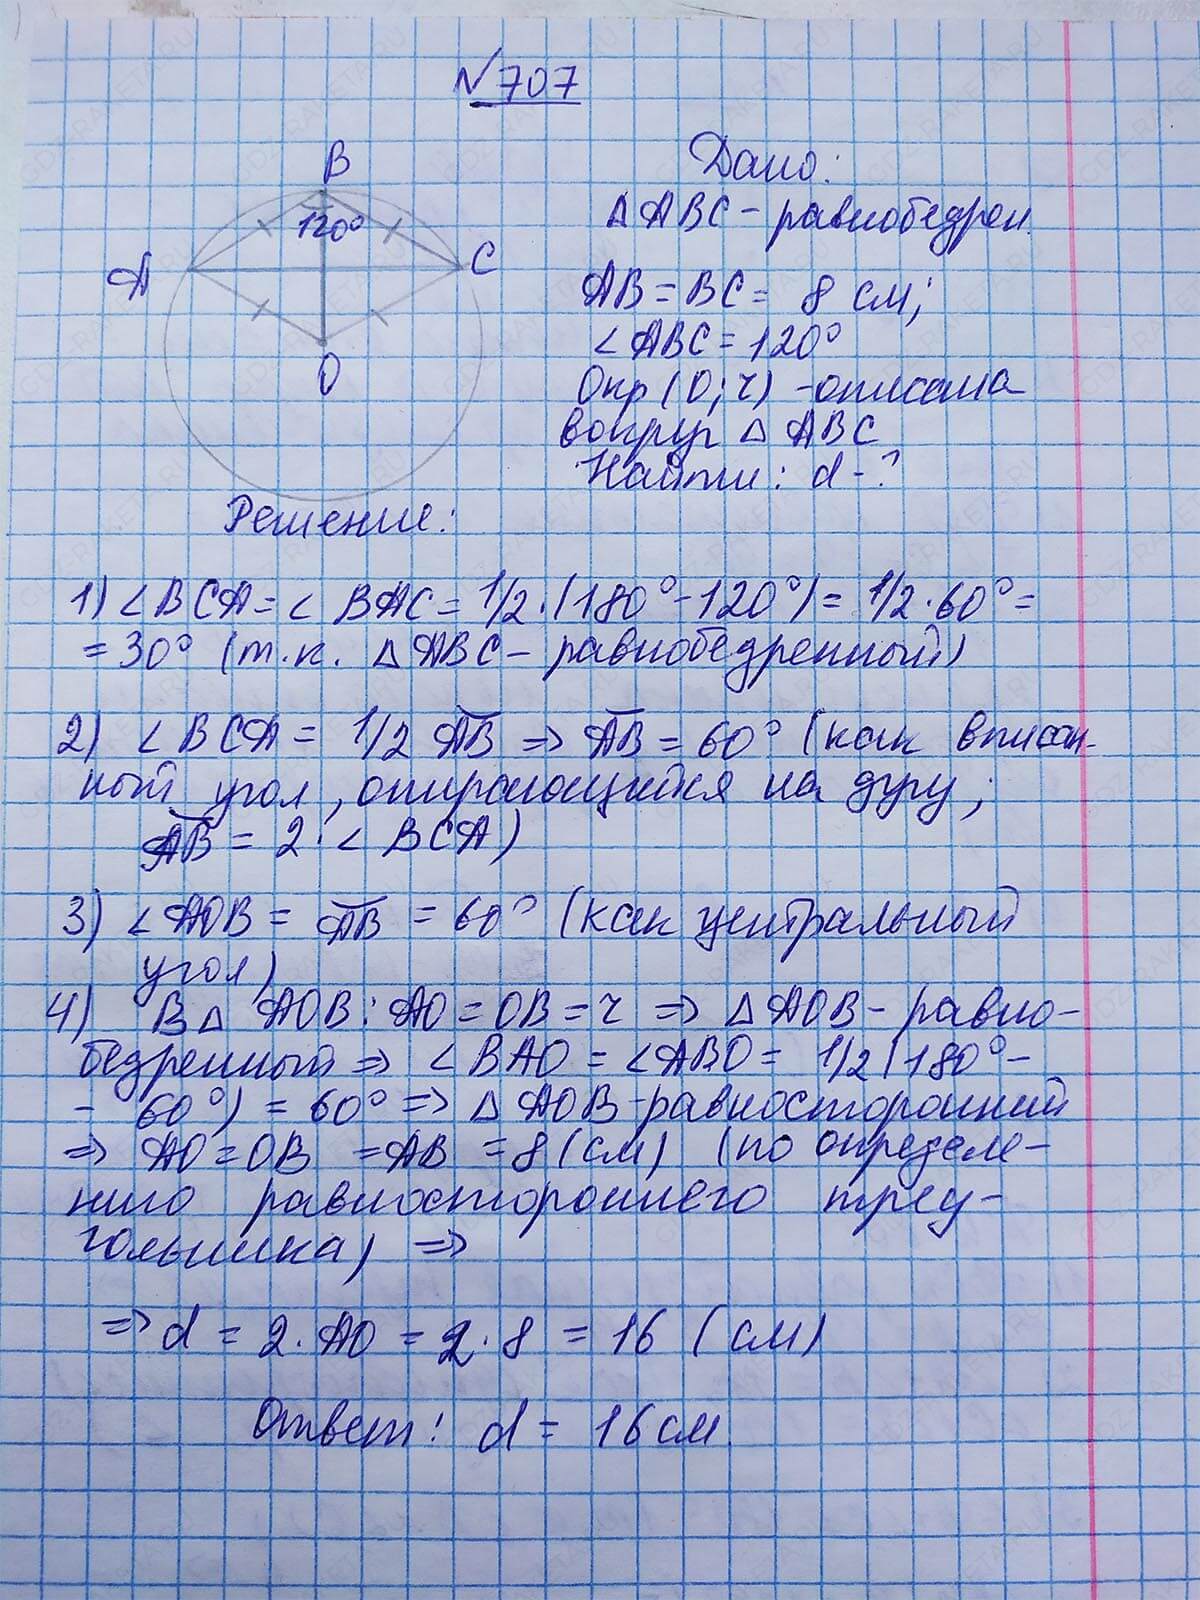 №707
B
120°
A
C
O
Дано:
△ABC - равнобедрен.
AB = BC = 8 см;
∠ABC = 120°
Окр (O; r) - описана
вокруг △ ABC
Найти: d - ?
Решение:
1) ∠BCA = ∠BAC = 1/2·(180° - 120°) = 1/2·60° =
= 30° (т.к. △ABC - равнобедренный)
2) ∠BCA = 1/2 A͡B ⇒ A͡B = 60° (как вписан-
ный угол, опирающийся на дугу;
A͡B = 2·∠BCA)
3) ∠AOB = A͡B = 60° (как центральный
угол)
4) В △ AOB: AO = OB = r ⇒ △AOB - равно-
бедренный ⇒ ∠BAO = ∠ABO = 1/2(180° -
- 60°) = 60° ⇒ △AOB - равносторонний
⇒ AO = OB = AB = 8 (см) (по определе-
нию равностороннего треу-
гольника) ⇒
⇒ d = 2·AO = 2·8 = 16 (см)
Ответ: d = 16 см.